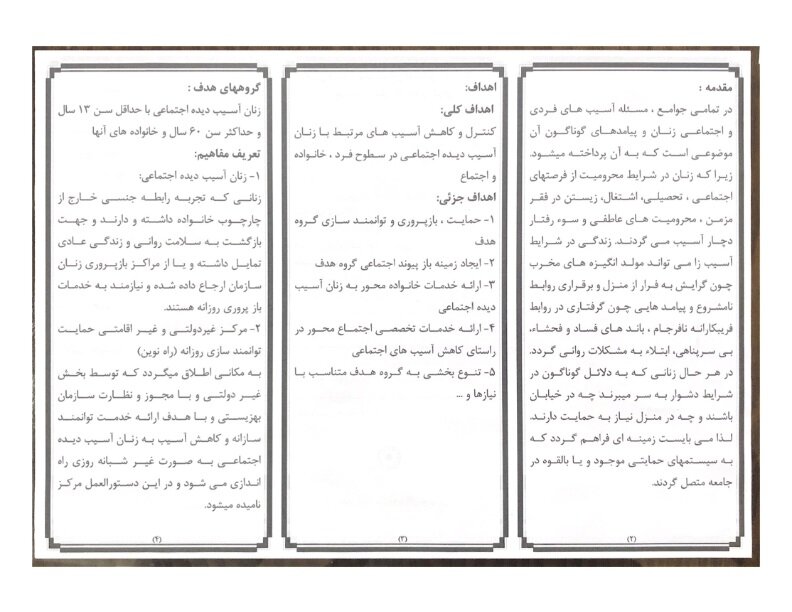 مقدمه :
در تمامی جوامع ، مسئله آسیب های فردی
و اجتماعی زنان و پیامدهای گوناگون آن
موضوعی است که به آن پرداخته میشود.
زیرا که زنان در شرایط محرومیت از فرصتهای
اجتماعی ، تحصیلی، اشتغال، زیستن در فقر
مزمن ، محرومیت های عاطفی و سوء رفتار
دچار آسیب می گردند. زندگی در شرایط
آسیب زا می تواند مولد انگیزه های مخرب
چون گرایش به فرار از منزل و برقراری روابط
نامشروع و پیامد هایی چون گرفتاری در روابط
فریبکارانه نافرجام ، باند های فساد و فحشاء،
بی سرپناهی، ابتلاء به مشکلات روانی گردد.
در هر حال زنانی که به دلائل گوناگون در
شرایط دشوار به سر میبرند چه در خیابان
باشند و چه در منزل نیاز به حمایت دارند.
لذا می بایست زمینه ای فراهم گردد که
به سیستمهای حمایتی موجود و یا بالقوه در
جامعه متصل گردند.
(۲)
اهداف:
اهداف کلی:
کنترل و کاهش آسیب های مرتبط با زنان
آسیب دیده اجتماعی در سطوح فرد ، خانواده
و اجتماع
اهداف جزئی:
۱- حمایت ، بازپروری و توانمند سازی گروه
هدف
۲- ایجاد زمینه باز پیوند اجتماعی گروه هدف
۳- ارائه خدمات خانواده محور به زنان آسیب
دیده اجتماعی
۴- ارائه خدمات تخصصی اجتماع محور در
راستای کاهش آسیب های اجتماعی
۵- تنوع بخشی به گروه هدف متناسب با
نیازها و ...
(۳)
گروههای هدف :
زنان آسیب دیده اجتماعی با حداقل سن ۱۳ سال
و حداکثر سن ۶۰ سال و خانواده های آنها
تعریف مفاهیم:
۱- زنان آسیب دیده اجتماعی:
زنانی که تجربه رابطه جنسی خارج از
چارچوب خانواده داشته و دارند و جهت
بازگشت به سلامت روانی و زندگی عادی
تمایل داشته و یا از مراکز بازپروری زنان
سازمان ارجاع داده شده و نیازمند به خدمات
باز پروری روزانه هستند.
۲- مرکز غیردولتی و غیر اقامتی حمایت
توانمند سازی روزانه (راه نوین)
به مکانی اطلاق میگردد که توسط بخش
غیر دولتی و با مجوز و نظارت سازمان
بهزیستی و با هدف ارائه خدمت توانمند
سازانه و کاهش آسیب به زنان آسیب دیده
اجتماعی به صورت غیر شبانه روزی راه
اندازی می شود و در این دستورالعمل مرکز
نامیده میشود.
(۴)